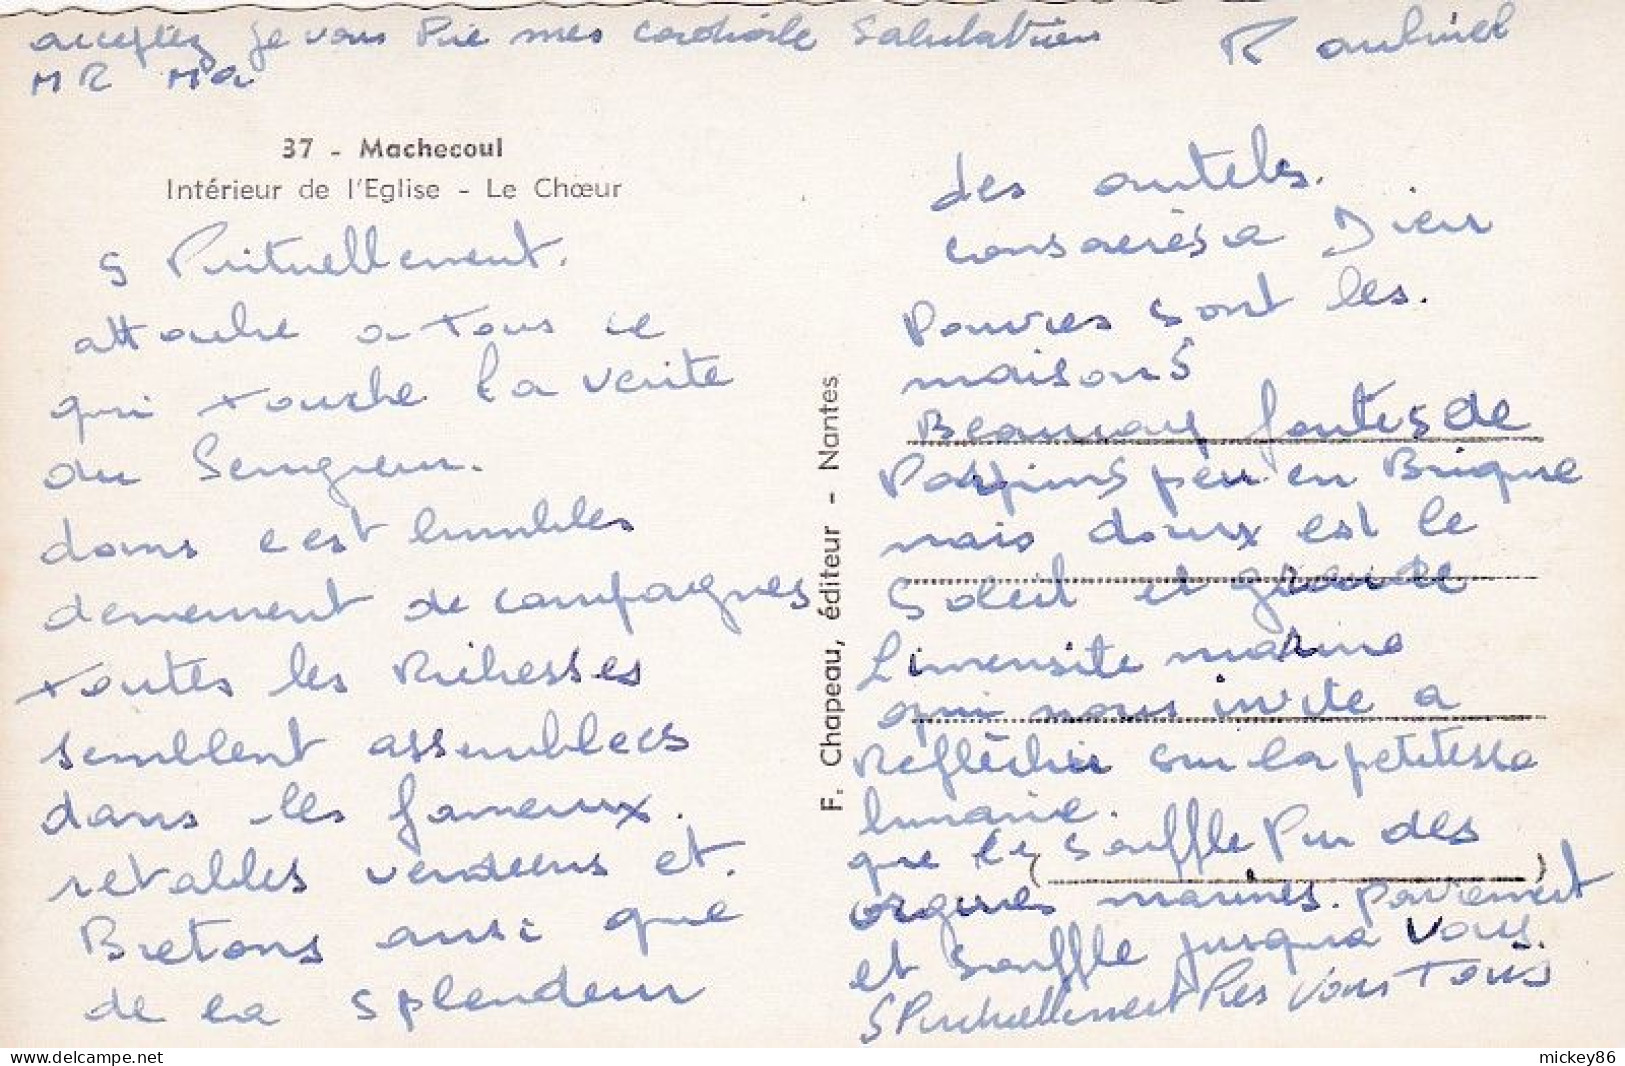 acceptez je vous Prie mes cordiale Salutation
MR Ma
37 - Machecoul
Intérieur de l'Eglise - Le Chœur
S Pirituellement.
attache a tous ce
qui touche la verite
du Seingneur.
dans c est humbles
demement de campagnes
toutes les Richesses
semblent assemblees
dans les fameux.
retables vendeens et.
Bretons ausi que
de la splendeur
F. Chapeau, éditeur - Nantes
des autels.
consacrés a Dieu
Pauvres sont les.
maisons
fontes de
peu en Brique
mais doux est le
Soleil et grande
L'imensite marine
qui nous invite a
Reflèchir sur la petitesse
humaine.
que le souffle Pur des
orgues marines. parviennent
et souffle jusqua Vous.
SPirituellement Pres Vous Tous
mickey86